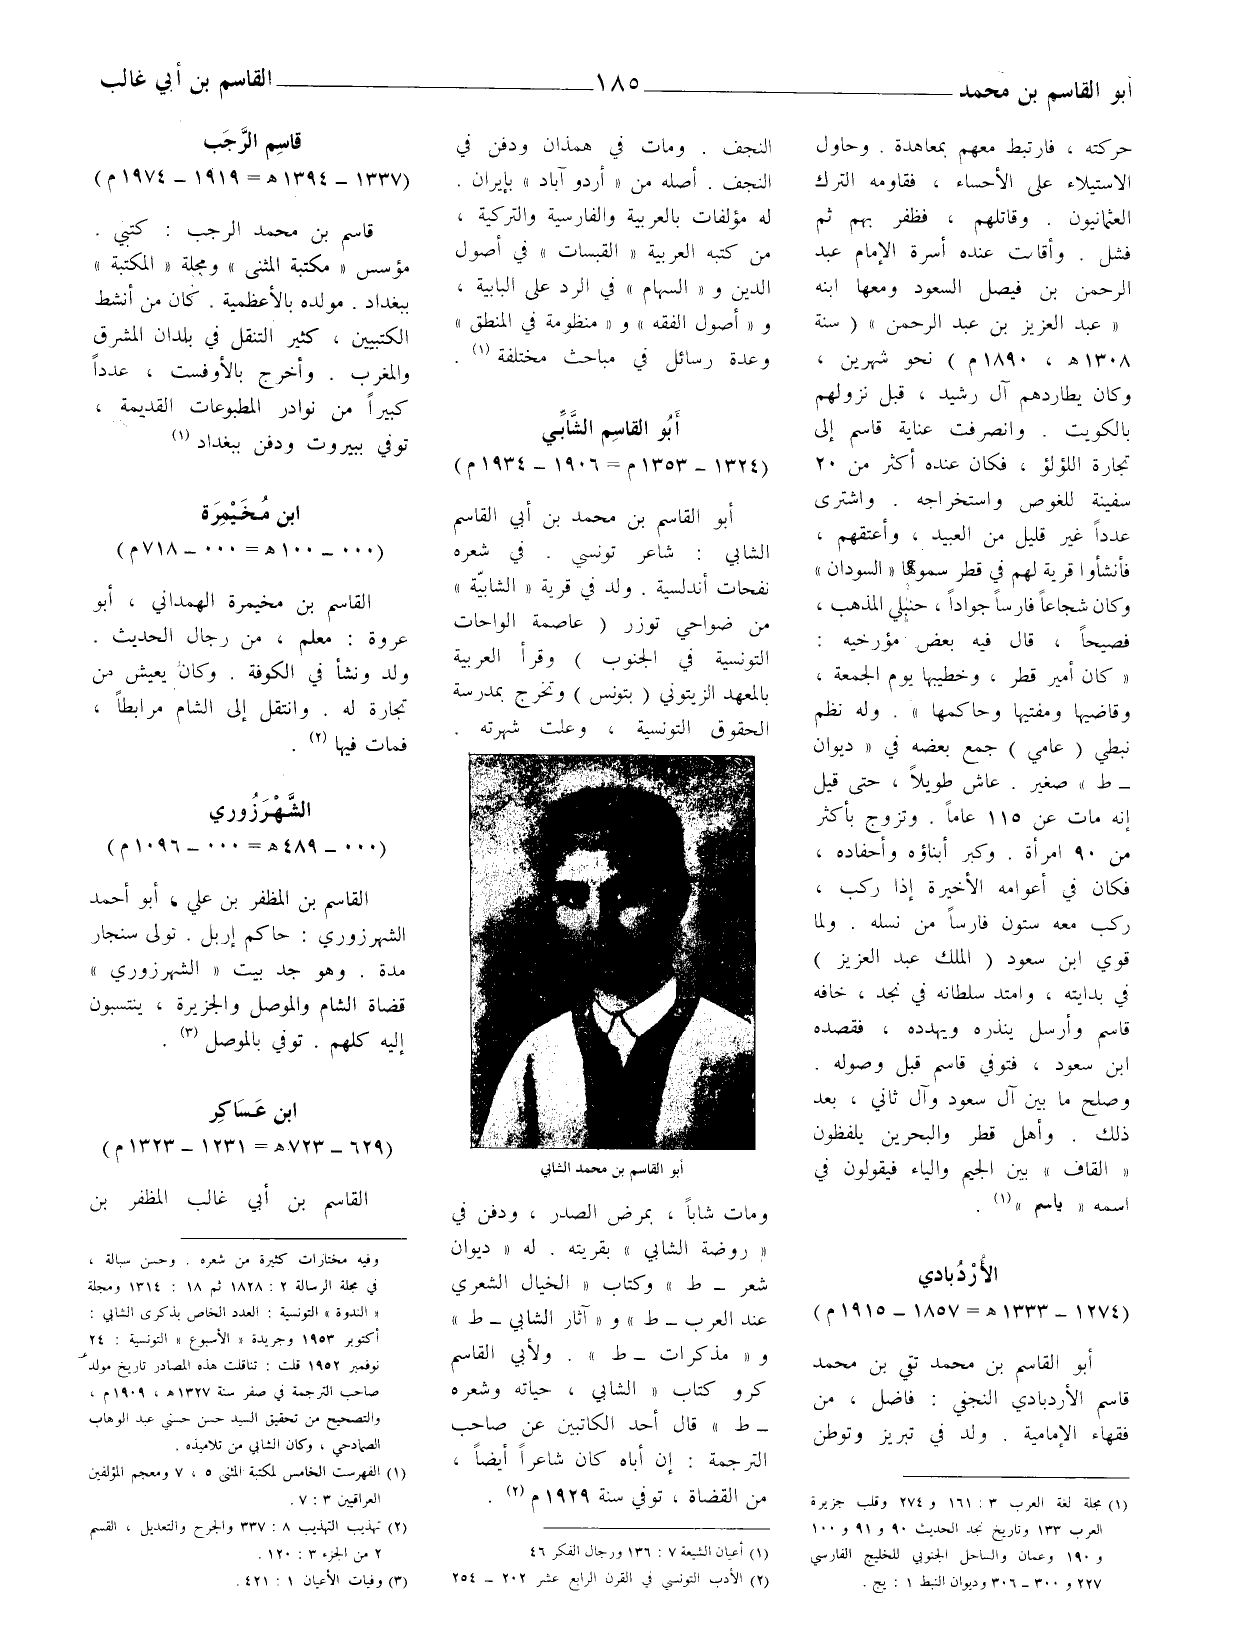 أبو القاسم بن محمد
١٨٥
القاسم بن أبي غالب
حركته ، فارتبط معهم بمعاهدة . وحاول
الاستيلاء على الأحساء ، فقاومه الترك
العثمانيون . وقاتلهم ، فظفر بهم ثم
فشل . وأقامت عنده أسرة الإمام عبد
الرحمن بن فيصل السعود ومعها ابنه
« عبد العزيز بن عبد الرحمن » ( سنة
١٣٠٨ هـ ، ١٨٩٠ م ) نحو شهرين ،
وكان يطاردهم آل رشيد ، قبل نزولهم
بالكويت . وانصرفت عناية قاسم إلى
تجارة اللؤلؤ ، فكان عنده أكثر من ٢٠
سفينة للغوص واستخراجه . واشترى
عدداً غير قليل من العبيد ، وأعتقهم ،
فأنشأوا قرية لهم في قطر سموها « السودان »
وكان شجاعاً فارساً جواداً ، حنبلي المذهب ،
فصيحاً ، قال فيه بعض مؤرخيه :
« كان أمير قطر ، وخطيبها يوم الجمعة ،
وقاضيها ومفتيها وحاكمها » . وله نظم
نبطي ( عامي ) جمع بعضه في « ديوان
ــ ط » صغير . عاش طويلاً ، حتى قيل
إنه مات عن ١١٥ عاماً . وتزوج بأكثر
من ٩٠ امرأة . وكبر أبناؤه وأحفاده ،
فكان في أعوامه الأخيرة إذا ركب ،
ركب معه ستون فارساً من نسله . ولما
قوي ابن سعود ( الملك عبد العزيز )
في بدايته ، وامتد سلطانه في نجد ، خافه
قاسم وأرسل ينذره ويهدده ، فقصده
ابن سعود ، فتوفي قاسم قبل وصوله .
وصلح ما بين آل سعود وآل ثاني ، بعد
ذلك . وأهل قطر والبحرين يلفظون
« القاف » بين الجيم والياء فيقولون في
اسمه « ياسم » (١) .
الأُرْدُبادي
(١٢٧٤ ــ ١٣٣٣ هـ = ١٨٥٧ ــ ١٩١٥ م)
أبو القاسم بن محمد تقي بن محمد
قاسم الأردبادي النجفي : فاضل ، من
فقهاء الإمامية . ولد في تبريز وتوطن
(١) مجلة لغة العرب ٣ : ١٦١ و ٢٧٤ وقلب جزيرة
العرب ١٣٣ وتاريخ نجد الحديث ٩٠ و ٩١ و ١٠٠
و ١٩٠ وعمان والساحل الجنوبي للخليج الفارسي
٢٢٧ و ٣٠٠ ــ ٣٠٦ وديوان النبط ١ : يج .
النجف . ومات في همذان ودفن في
النجف . أصله من « أردو آباد » بإيران .
له مؤلفات بالعربية والفارسية والتركية ،
من كتبه العربية « القبسات » في أصول
الدين و « السهام » في الرد على البابية ،
و « أصول الفقه » و « منظومة في المنطق »
وعدة رسائل في مباحث مختلفة (١) .
أَبُو القاسِم الشَّابِّي
(١٣٢٤ ــ ١٣٥٣ م = ١٩٠٦ ــ ١٩٣٤ م)
أبو القاسم بن محمد بن أبي القاسم
الشابي : شاعر تونسي . في شعره
نفحات أندلسية . ولد في قرية « الشابيّة »
من ضواحي توزر ( عاصمة الواحات
التونسية في الجنوب ) وقرأ العربية
بالمعهد الزيتوني ( بتونس ) وتخرج بمدرسة
الحقوق التونسية ، وعلت شهرته .
أبو القاسم بن محمد الشابي
ومات شاباً ، بمرض الصدر ، ودفن في
« روضة الشابي » بقريته . له « ديوان
شعر ــ ط » وكتاب « الخيال الشعري
عند العرب ــ ط » و « آثار الشابي ــ ط »
و « مذكرات ــ ط » . ولأبي القاسم
كرو كتاب « الشابي ، حياته وشعره
ــ ط » قال أحد الكاتبين عن صاحب
الترجمة : إن أباه كان شاعراً أيضاً ،
من القضاة ، توفي سنة ١٩٢٩ م (٢) .
(١) أعيان الشيعة ٧ : ١٣٦ ورجال الفكر ٤٦
(٢) الأدب التونسي في القرن الرابع عشر ٢٠٢ ــ ٢٥٤
قاسِم الرَّجَب
(١٣٣٧ ــ ١٣٩٤ هـ = ١٩١٩ ــ ١٩٧٤ م)
قاسم بن محمد الرجب : كتبي .
مؤسس « مكتبة المثنى » ومجلة « المكتبة »
ببغداد . مولده بالأعظمية . كان من أنشط
الكتبيين ، كثير التنقل في بلدان المشرق
والمغرب . وأخرج بالأوفست ، عدداً
كبيراً من نوادر المطبوعات القديمة ،
توفي ببيروت ودفن ببغداد (١)
ابن مُخَيْمِرَة
(٠٠٠ ــ ١٠٠ هـ = ٠٠٠ ــ ٧١٨ م)
القاسم بن مخيمرة الهمداني ، أبو
عروة : معلم ، من رجال الحديث .
ولد ونشأ في الكوفة . وكان يعيش من
تجارة له . وانتقل إلى الشام مرابطاً ،
فمات فيها (٢) .
الشَّهْرَزُوري
(٠٠٠ ــ ٤٨٩ هـ = ٠٠٠ ــ ١٠٩٦ م)
القاسم بن المظفر بن علي ، أبو أحمد
الشهرزوري : حاكم إربل . تولى سنجار
مدة . وهو جد بيت « الشهرزوري »
قضاة الشام والموصل والجزيرة ، ينتسبون
إليه كلهم . توفي بالموصل (٣) .
ابن عَسَاكِر
(٦٢٩ ــ ٧٢٣ هـ = ١٢٣١ ــ ١٣٢٣ م)
القاسم بن أبي غالب المظفر بن
وفيه مختارات كثيرة من شعره . وحسن سبالة ،
في مجلة الرسالة ٢ : ١٨٢٨ ثم ١٨ : ١٣١٤ ومجلة
« الندوة » التونسية : العدد الخاص بذكرى الشابي :
أكتوبر ١٩٥٣ وجريدة « الأسبوع » التونسية : ٢٤
نوفمبر ١٩٥٢ قلت : تناقلت هذه المصادر تاريخ مولد
صاحب الترجمة في صفر سنة ١٣٢٧ هـ ، ١٩٠٩ م ،
والتصحيح من تحقيق السيد حسن حسني عبد الوهاب
الصمادحي ، وكان الشابي من تلاميذه .
(١) الفهرست الخامس لمكتبة المثنى ٥ ، ٧ ومعجم المؤلفين
العراقيين ٣ : ٧ .
(٢) تهذيب التهذيب ٨ : ٣٣٧ والجرح والتعديل ، القسم
٢ من الجزء ٣ : ١٢٠ .
(٣) وفيات الأعيان ١ : ٤٢١ .